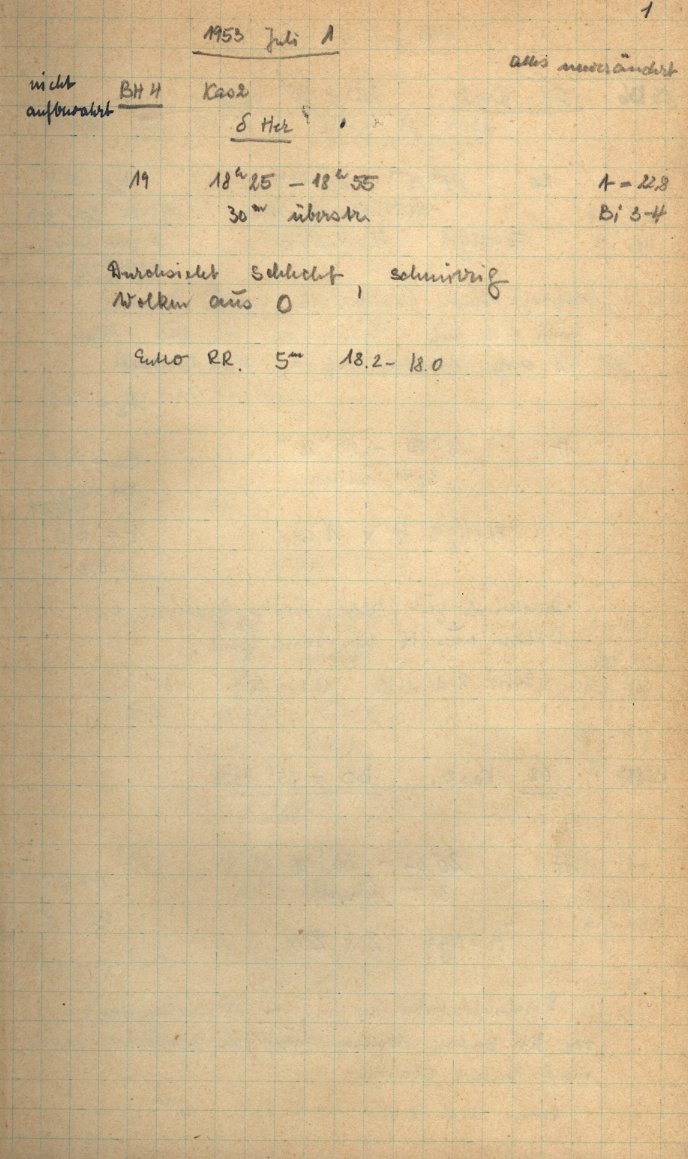 1
1953 Juli 1
alles unverändert
nicht aufbewahrt
BH 4 Kas2
δ Her
19 18ʰ25 – 18ʰ55 t = 22,8
30ᵐ Bi 3-4
Durchsicht schlecht, schmirzig
Wolken aus O
RR. 5ᵐ 18.2 – 18.0